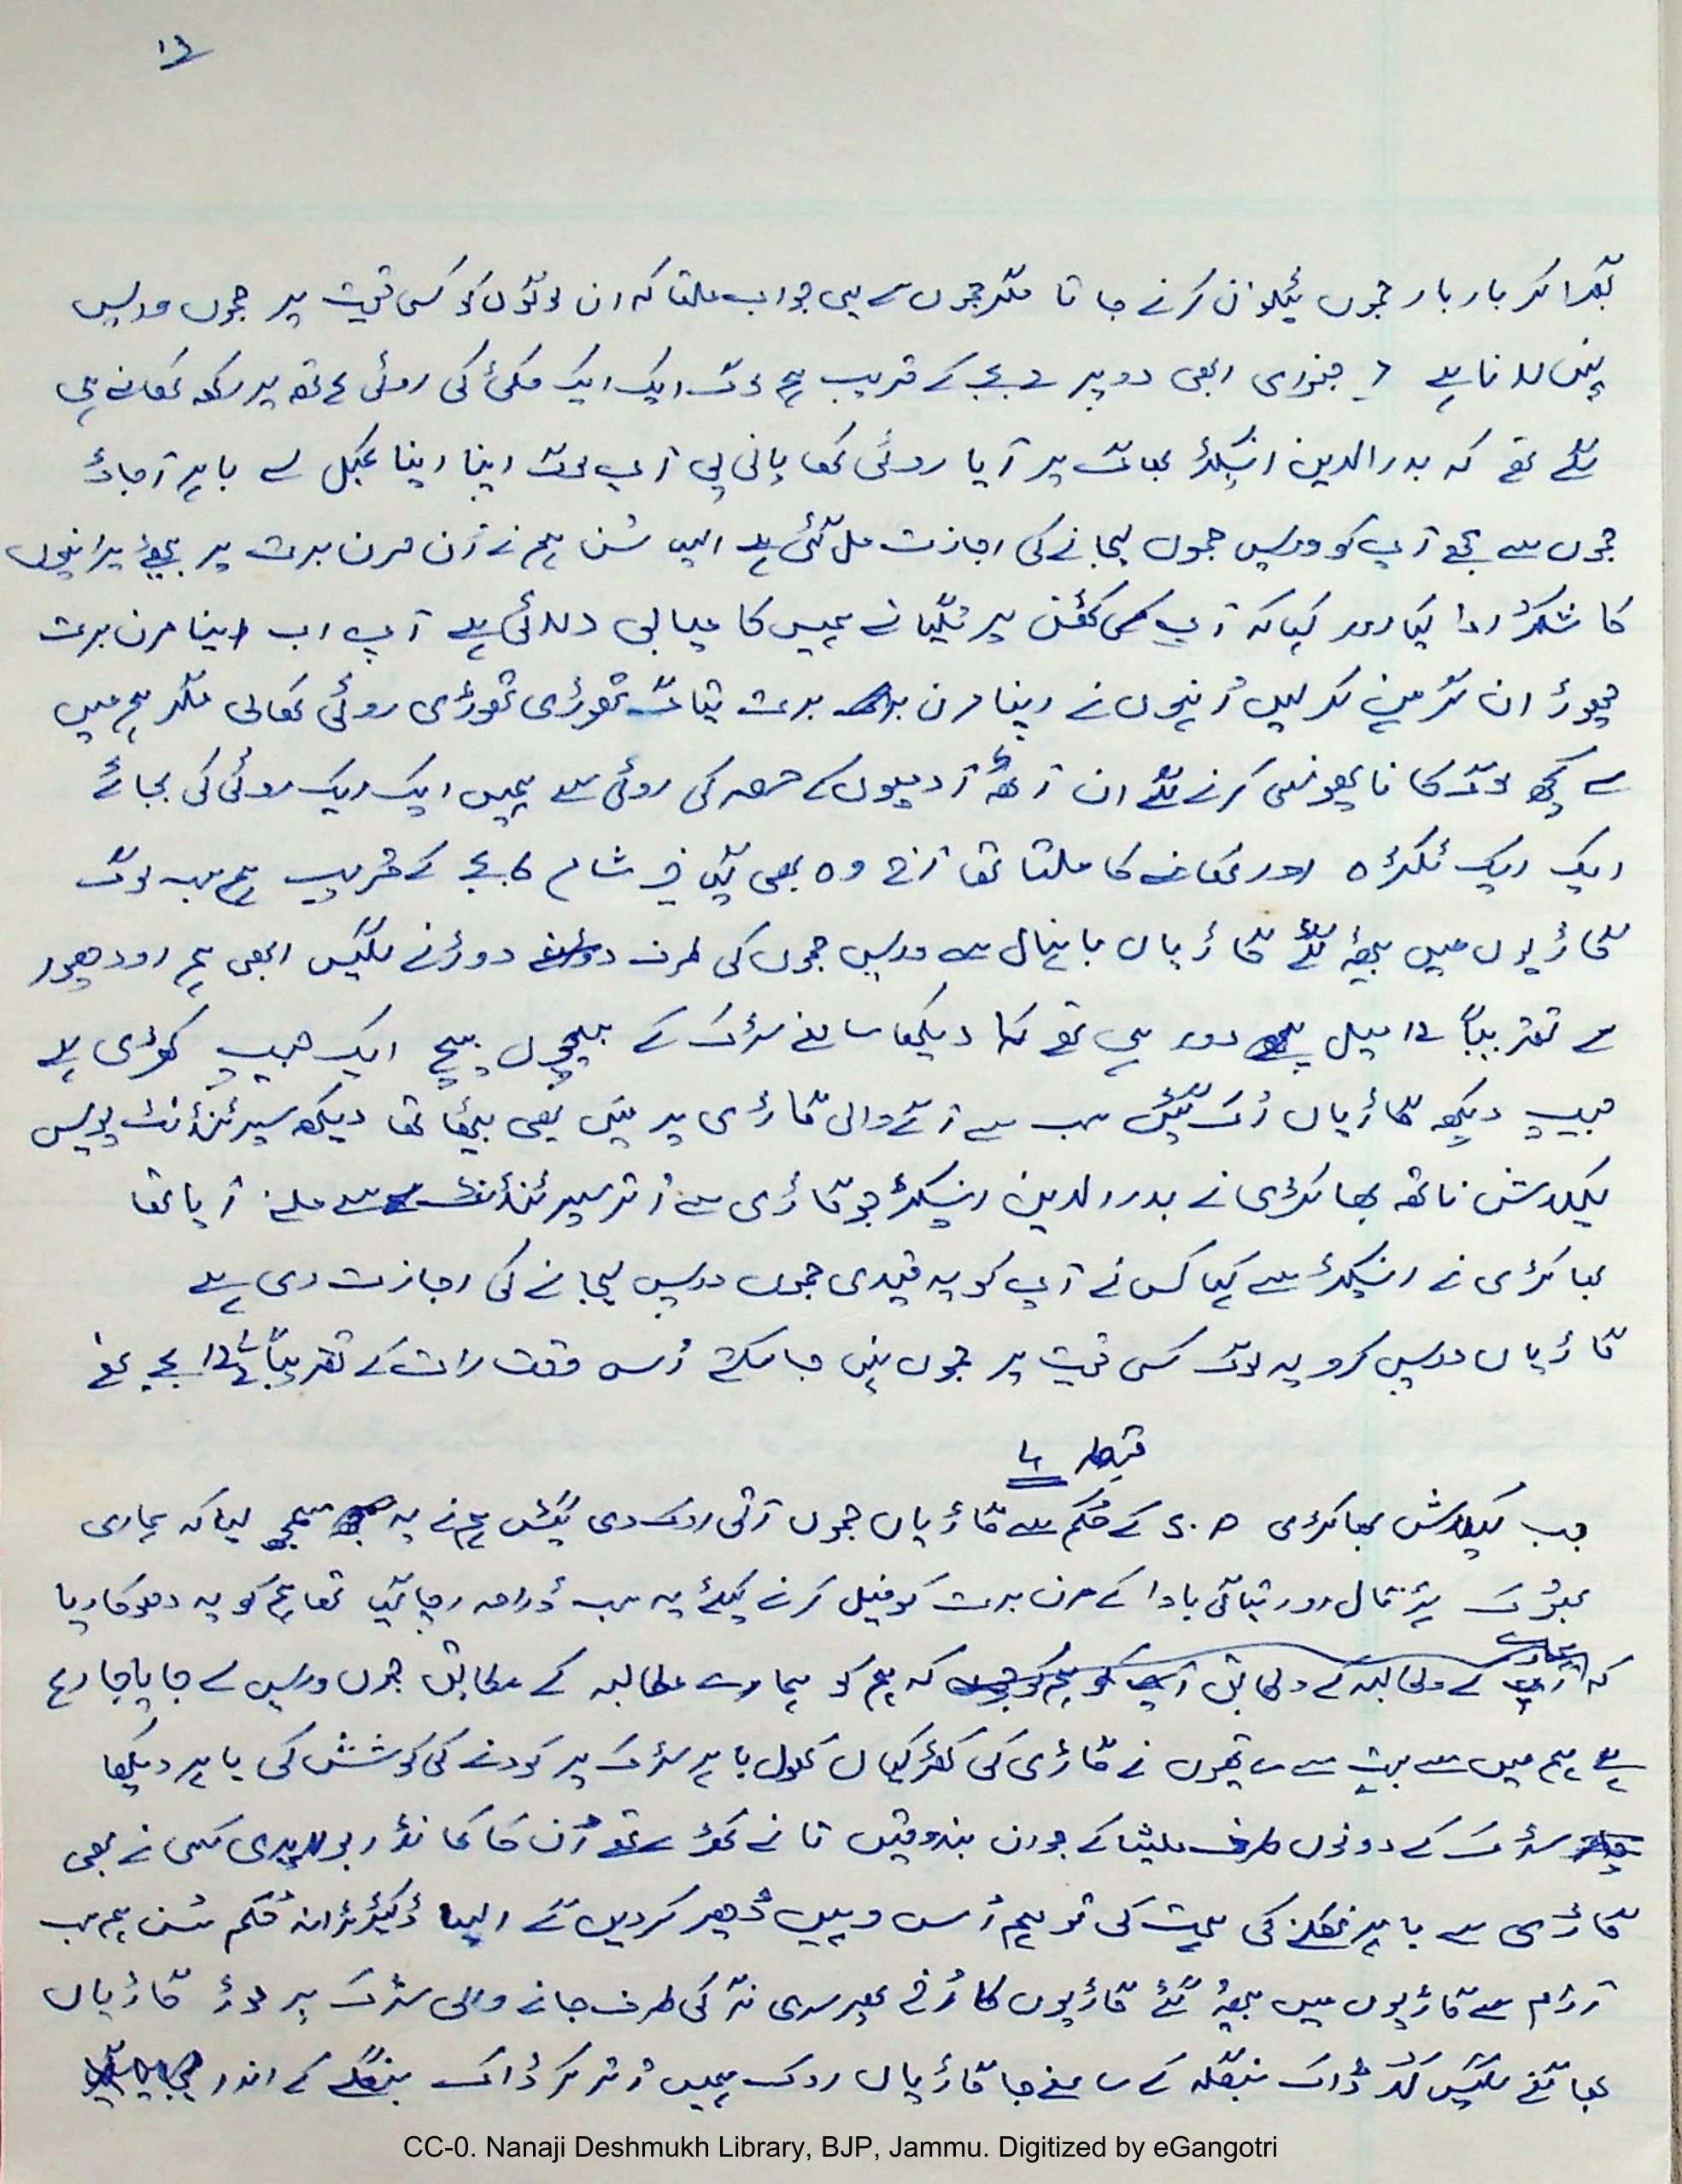 گھبرا کر بار بار جموں ٹیلیفون کرنے جاتا مگر جموں سے یہی جواب ملتا کہ ان لوگوں کو کسی قیمت پر جموں واپس
نہیں لانا ہے جنوری ابھی دوپہر 2 بجے کے قریب ہم لوگ ایک ایک مکئی کی روٹی ہاتھ پر رکھ کھانے ہی
لگے تھے کہ بدرالدین انسپکٹر بھاگ پر آیا روٹی کھا پانی پی آپ لوگ اپنا اپنا کمبل لے باہر آجاؤ
جموں سے مجھے آپ کو واپس جموں لیجانے کی اجازت مل گئی ہے ایسا سُن ہم نے اُن مرن برت پر بیٹھے
کا شکر ادا کیا اور کہا کہ آپ کی کٹھن پر تگیا نے ہمیں کامیابی دلائی ہے آپ اب اپنا مرن برت
چھوڑ ان گرہن کر لیں اُنہوں نے اپنا مرن برت تیاگ تھوڑی تھوڑی روٹی کھالی مگر ہم میں
سے کچھ لوگ کانا پھونسی کرنے لگے ان آٹھ آدمیوں کے حصہ کی روٹی سے ہمیں ایک ایک روٹی کی بجائے
ایک ایک ٹکڑہ اور کھانے کا ملتا تھا آج وہ بھی گیا شام 6 بجے کے قریب ہم سب لوگ
گاڑیوں میں بیٹھ گئے گاڑیاں بانہال سے واپس جموں کی طرف دوڑنے لگیں ابھی ہم اودھمپور
سے تقریباً 12 میل دور ہی تھے کہ دیکھا سامنے سڑک کے بیچوں بیچ ایک جیپ کھڑی ہے
جیپ دیکھ گاڑیاں رُک گئیں سب سے آگے والی گاڑی پر میں بھی بیٹھا تھا دیکھ سپرنٹنڈنٹ پولیس
کیلاش ناتھ بھاکڑی نے بدرالدین انسپکٹر جو گاڑی سے اُتر سپرنٹنڈنٹ سے ملنے آیا تھا
بھاکڑی نے انسپکٹر سے کہا کس نے آپ کو یہ قیدی جموں واپس لیجانے کی اجازت دی ہے
گاڑیاں واپس کرو یہ لوگ کسی قیمت پر جموں نہیں جا سکتے اُس وقت رات کے تقریباً 12½ بجے تھے
جب کیلاش بھاکڑی S.P کے حُکم سے گاڑیاں جموں آتی روک دی گئیں ہم نے یہ سمجھ لیا کہ ہماری
بھوک ہڑتال اور تیاگی بادا کے مرن برت کو فیل کرنے کیلئے یہ سب ڈرامہ رچا گیا تھا ہم کو یہ دھوکا دیا
کہ ہم کو ہمارے مطالبہ کے مطابق جموں واپس لے جایا جا رہا
ہے ہم میں سے بہت سے ساتھیوں نے گاڑی کی کھڑکیاں کھول باہر سڑک پر کودنے کی کوشش کی باہر دیکھا
سڑک کے دونوں طرف ملیشیا کے جوان بندوقیں تانے کھڑے تھے اُن کا کمانڈر بولا کسی نے بھی
گاڑی سے باہر نکلنے کی ہمت کی تو ہم اُسے وہیں ڈھیر کر دیں گے ایسا ڈکٹیٹرانہ حُکم سُن ہم سب
آرام سے گاڑیوں میں بیٹھ گئے گاڑیوں کا رُخ پھر سری نگر کی طرف جانے والی سڑک پر موڑ گاڑیاں
بھاگنے لگیں کُد ڈاک بنگلہ کے سامنے جا گاڑیاں روک ہمیں اُتار کر ڈاک بنگلے کے اندر
CC-0. Nanaji Deshmukh Library, BJP, Jammu. Digitized by eGangotri